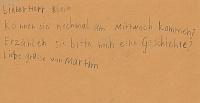 Lieber Herr Klein
Können sie nochmal am Mittwoch kommen?
Erzählen sie bitte noch eine Geschichte?
Liebe grüße von Martin